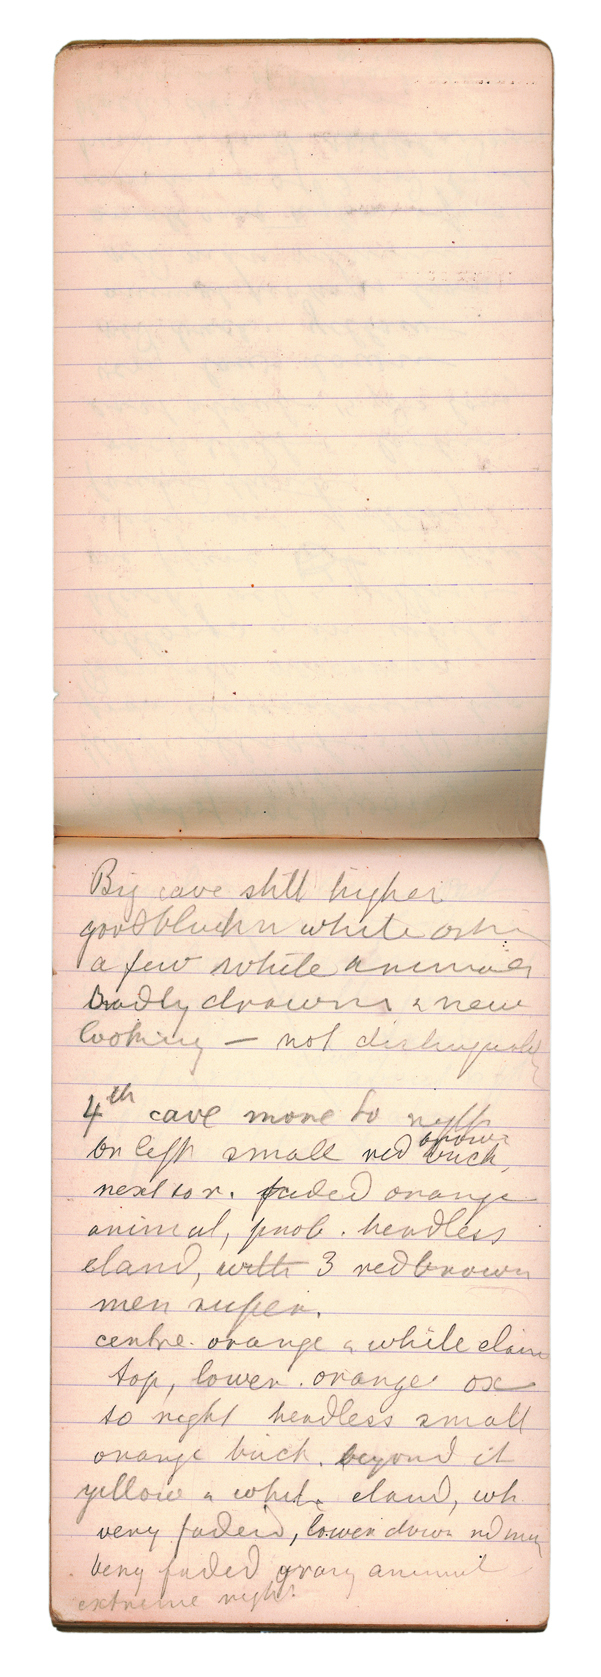 Big cave still higher
good black n white
a few white animals
badly drawn & new
looking — not
4th cave more to right
on left small red brown buck,
next to r. faded orange
animal, prob. headless
eland, with 3 red brown
men super.
centre. orange & white eland
top, lower. orange ox
to right headless small
orange buck. beyond it
yellow & white eland, wh
very faded, lower down red man
very faded gray animal
extreme right.